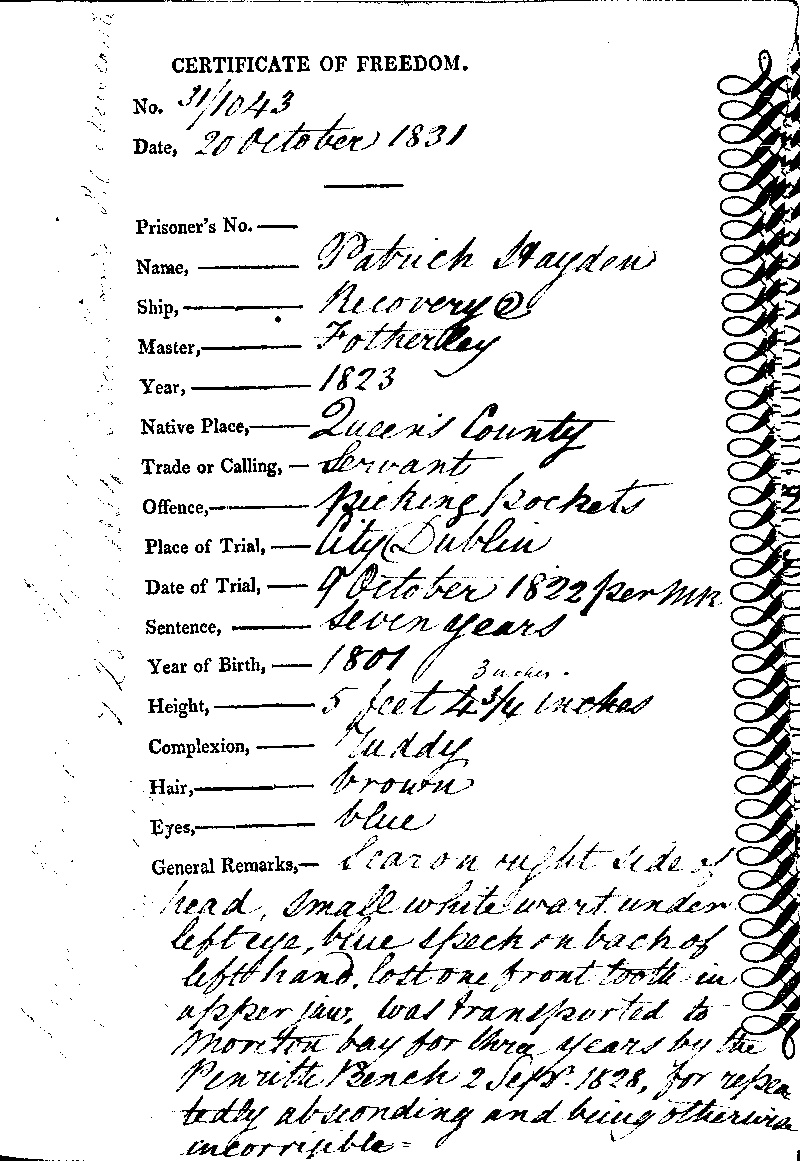 CERTIFICATE OF FREEDOM.
No. 31/1043
Date, 20 October 1831
Prisoner's No. —
Name, — Patrick Hayden
Ship, — Recovery (2)
Master, — Fotherley
Year, — 1823
Native Place, — Queen's County
Trade or Calling, — Servant
Offence, — picking pockets
Place of Trial, — City Dublin
Date of Trial, — 9 October 1822 per MR
Sentence, — seven years
Year of Birth, — 1801
3 inches.
Height, — 5 feet 4 3/4 inches
Complexion, — ruddy
Hair, — brown
Eyes, — blue
General Remarks, — Scar on right side of
head, small white wart under
left eye, blue speck on back of
left hand, lost one front tooth in
upper jaw, was transported to
Moreton bay for three years by the
Penrith Bench 2 Sepr. 1828, for repea
tedly absconding and being otherwise
incorrigible =